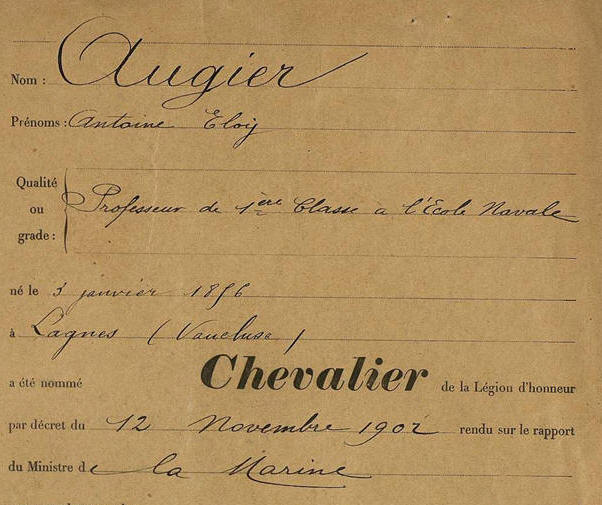 Nom : Augier
Prénoms : Antoine Eloy
Qualité
ou
grade :
Professeur de 1ère Classe à l'Ecole Navale
né le 3 janvier 1856
à Lagnes (Vaucluse)
a été nommé Chevalier de la Légion d'honneur
par décret du 12 Novembre 1902 rendu sur le rapport
du Ministre de la Marine